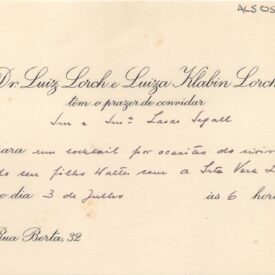 ALS 05
Dr. Luiz Lorch e Luiza Klabin Lorch
têm o prazer de convidar
Snr e Snrª Lasar Segall
para um cocktail por ocasião do
do seu filho Walter com a Srta Vera L
o dia 3 de Julho às 6 hor
Rua Berta, 32